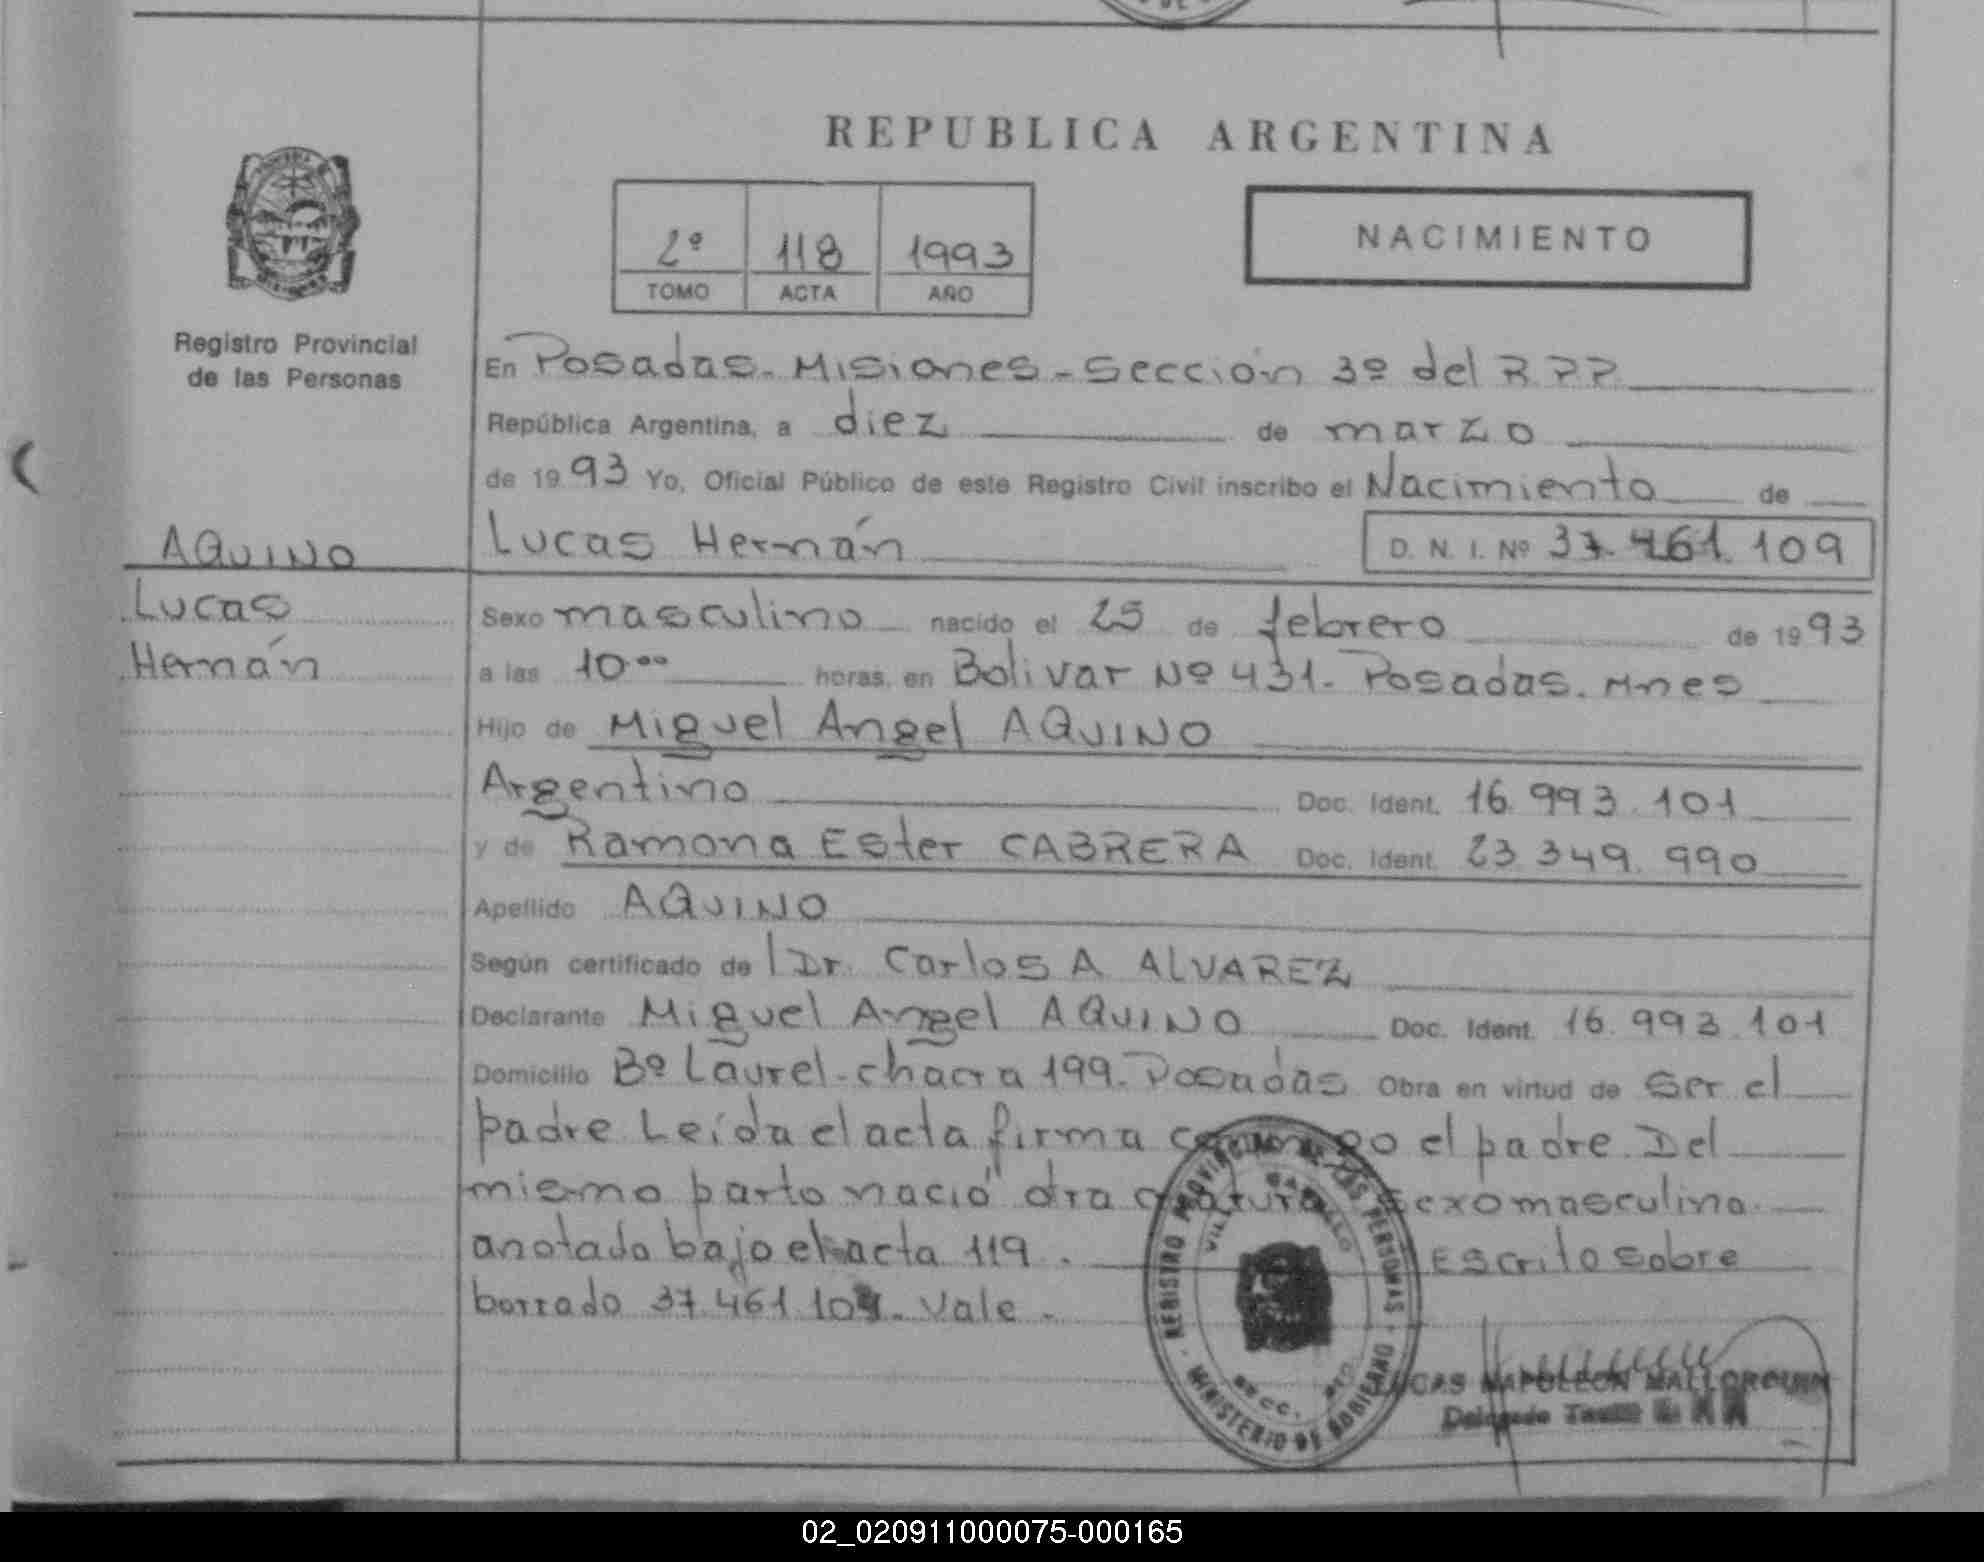 REPUBLICA ARGENTINA
2º 118 1993
TOMO ACTA AÑO
NACIMIENTO
Registro Provincial
de las Personas
En Posadas - Misiones - Sección 3º del R.P.P.
República Argentina, a diez de marzo
de 1993 Yo, Oficial Público de este Registro Civil inscribo el Nacimiento de
AQUINO
Lucas
Hernán
Lucas Hernán D. N. I. Nº 37.461.109
Sexo masculino nacido el 25 de febrero de 1993
a las 10 ⁰⁰ horas, en Bolivar Nº 431. Posadas. Mnes
Hijo de Miguel Angel AQUINO
Argentino Doc. Ident. 16.993.101
y de Ramona Ester CABRERA Doc. Ident. 23.349.990
Apellido AQUINO
Según certificado de l Dr. Carlos A ALVAREZ
Declarante Miguel Angel AQUINO Doc. Ident. 16.993.101
Domicilio Bº Laurel - chacra 199. Posadas Obra en virtud de ser el
padre. Leída el acta firma conmigo el padre. Del
mismo parto nació otra criatura sexo masculino
anotado bajo el acta 119. Escrito sobre
borrado 37.461.109. Vale.
REGISTRO PROVINCIAL DE LAS PERSONAS
MINISTERIO DE GOBIERNO
LUCAS NAPOLEON MALLORQUIN
02_020911000075-000165